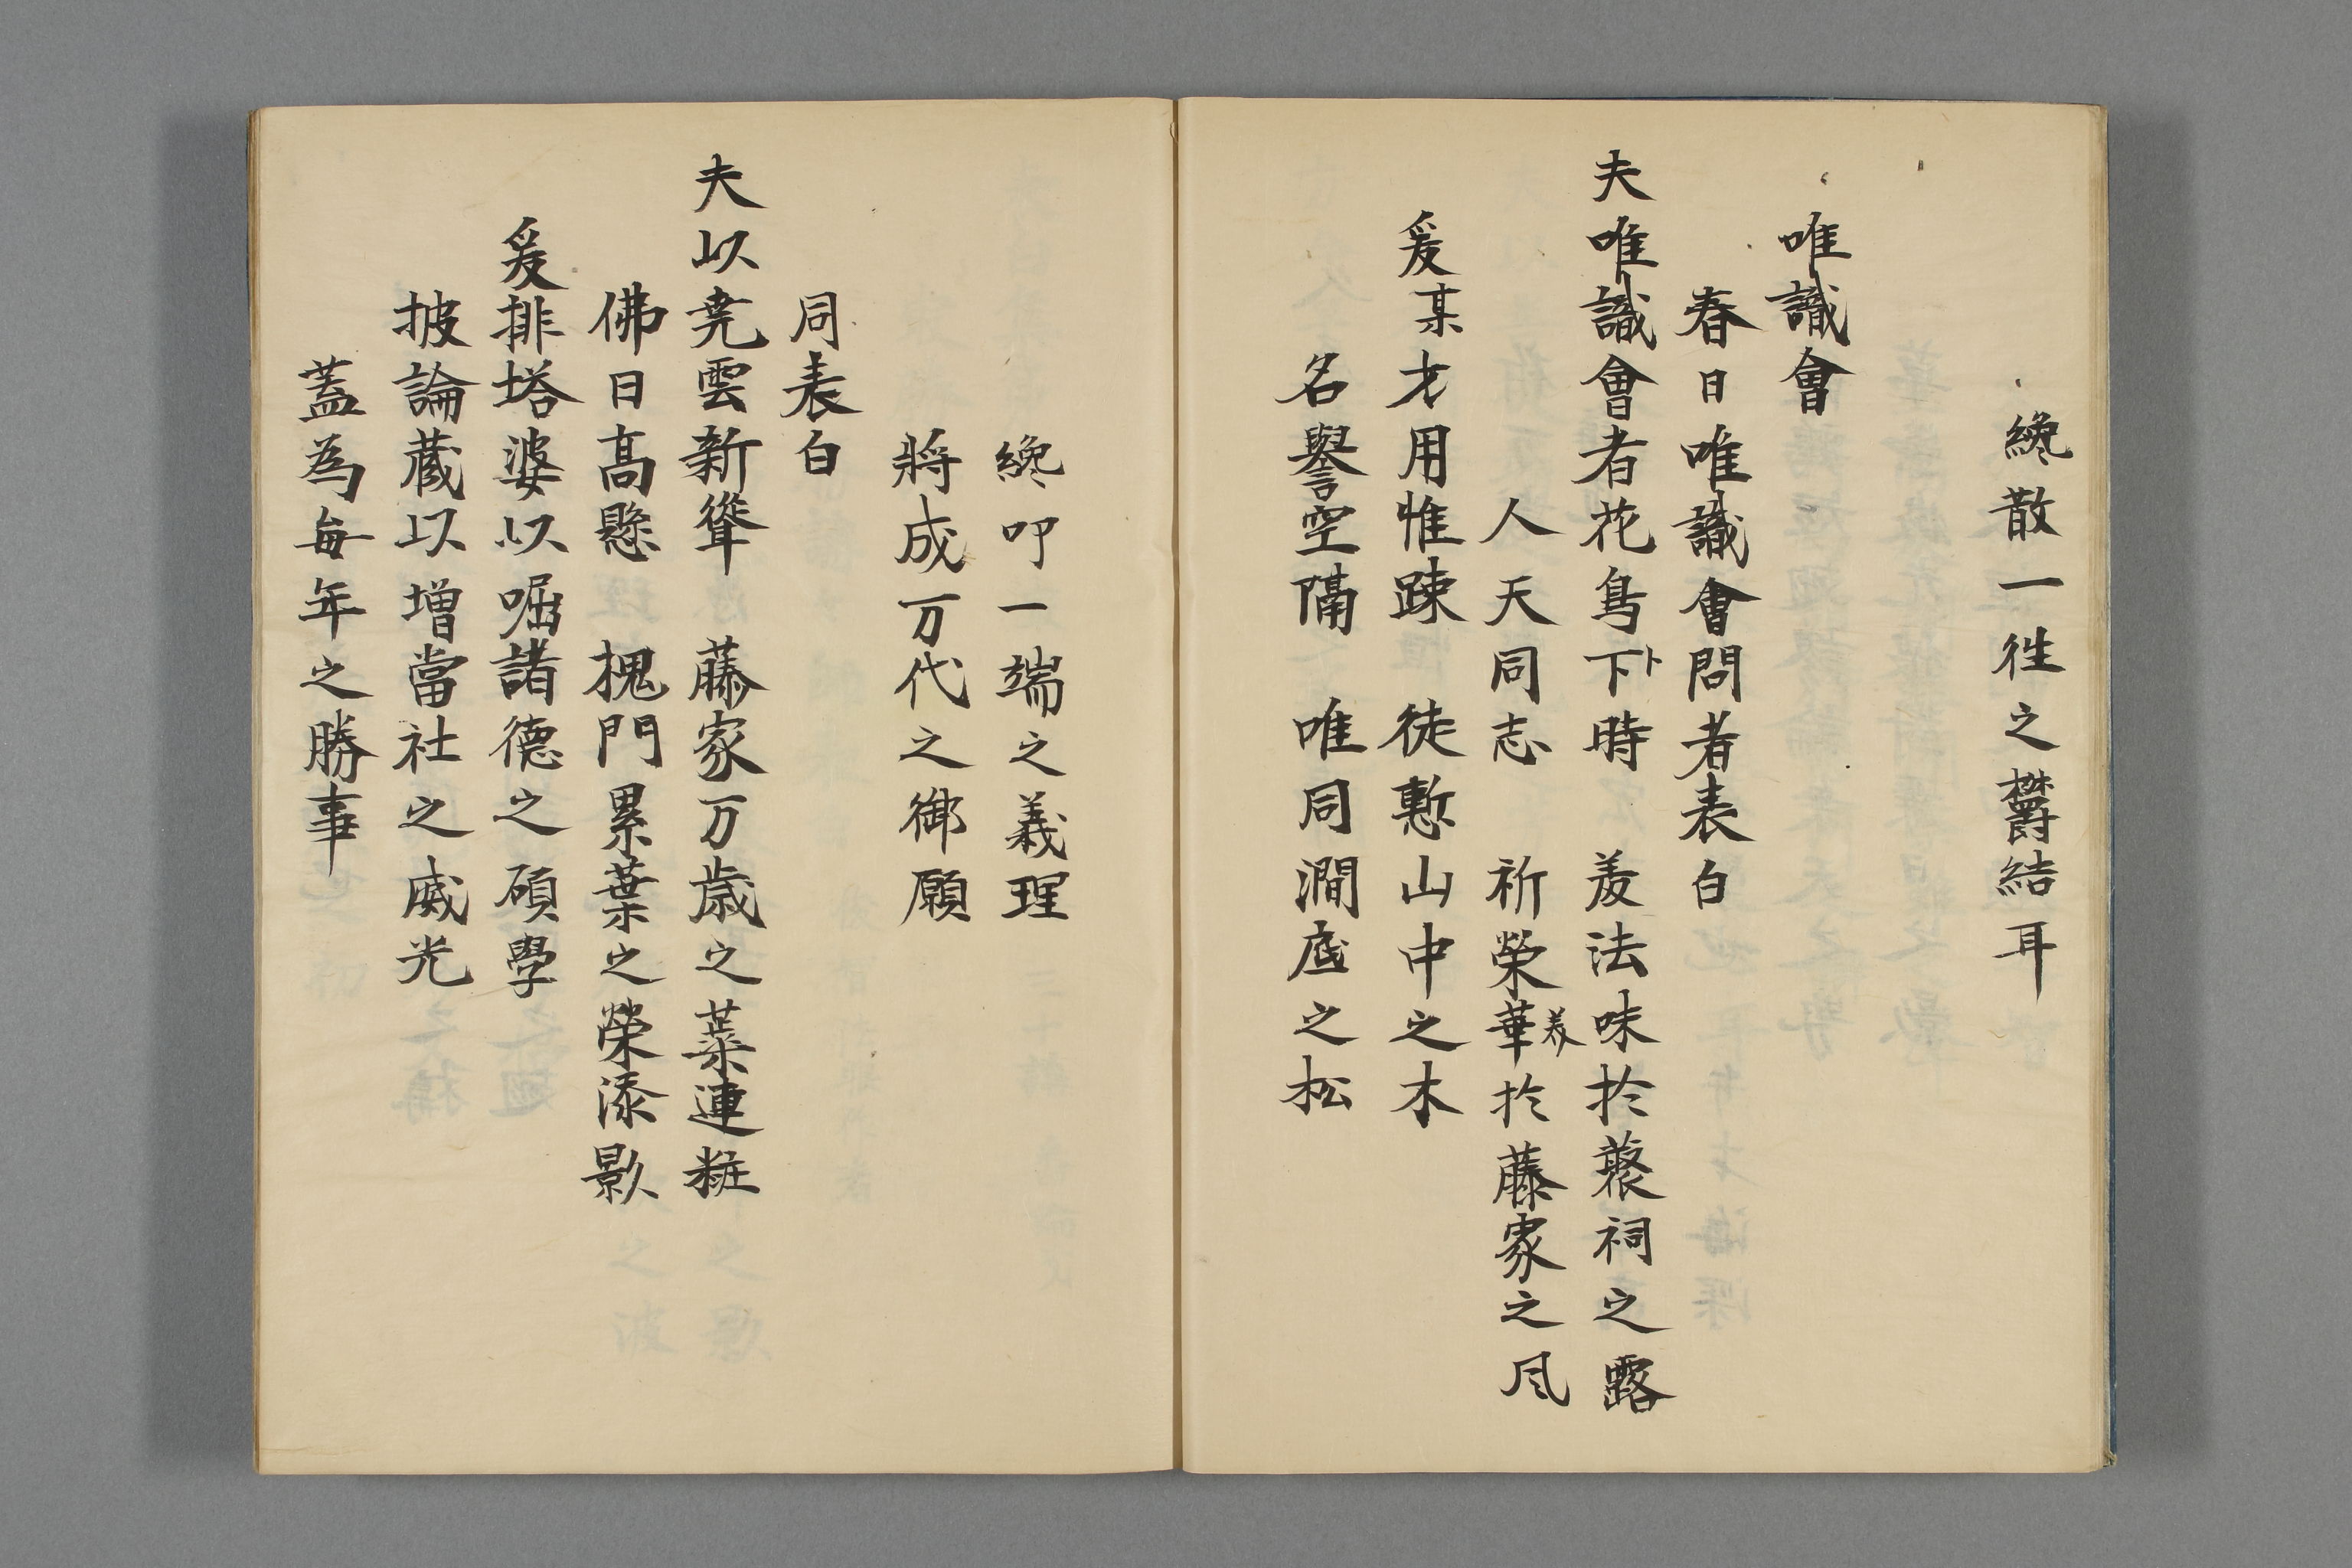 纔散一往之欝結耳
唯識會
春日唯識會問者表白
夫唯識會者花鳥下ト時 羞法味於蘩祠之露
人天同志 祈榮華美於藤家之风
爰某才用惟踈 徒慙山中之木
名譽空隔 唯同澗底之松
纔叩一端之義理
將成万代之御願
同表白
夫以尭雲新聳 藤家万歳之葉連粧
佛日高懸 槐門累葉之榮添影
爰排塔婆以崛諸德之碩學
披論蔵以増當社之威光
蓋為毎年之勝事